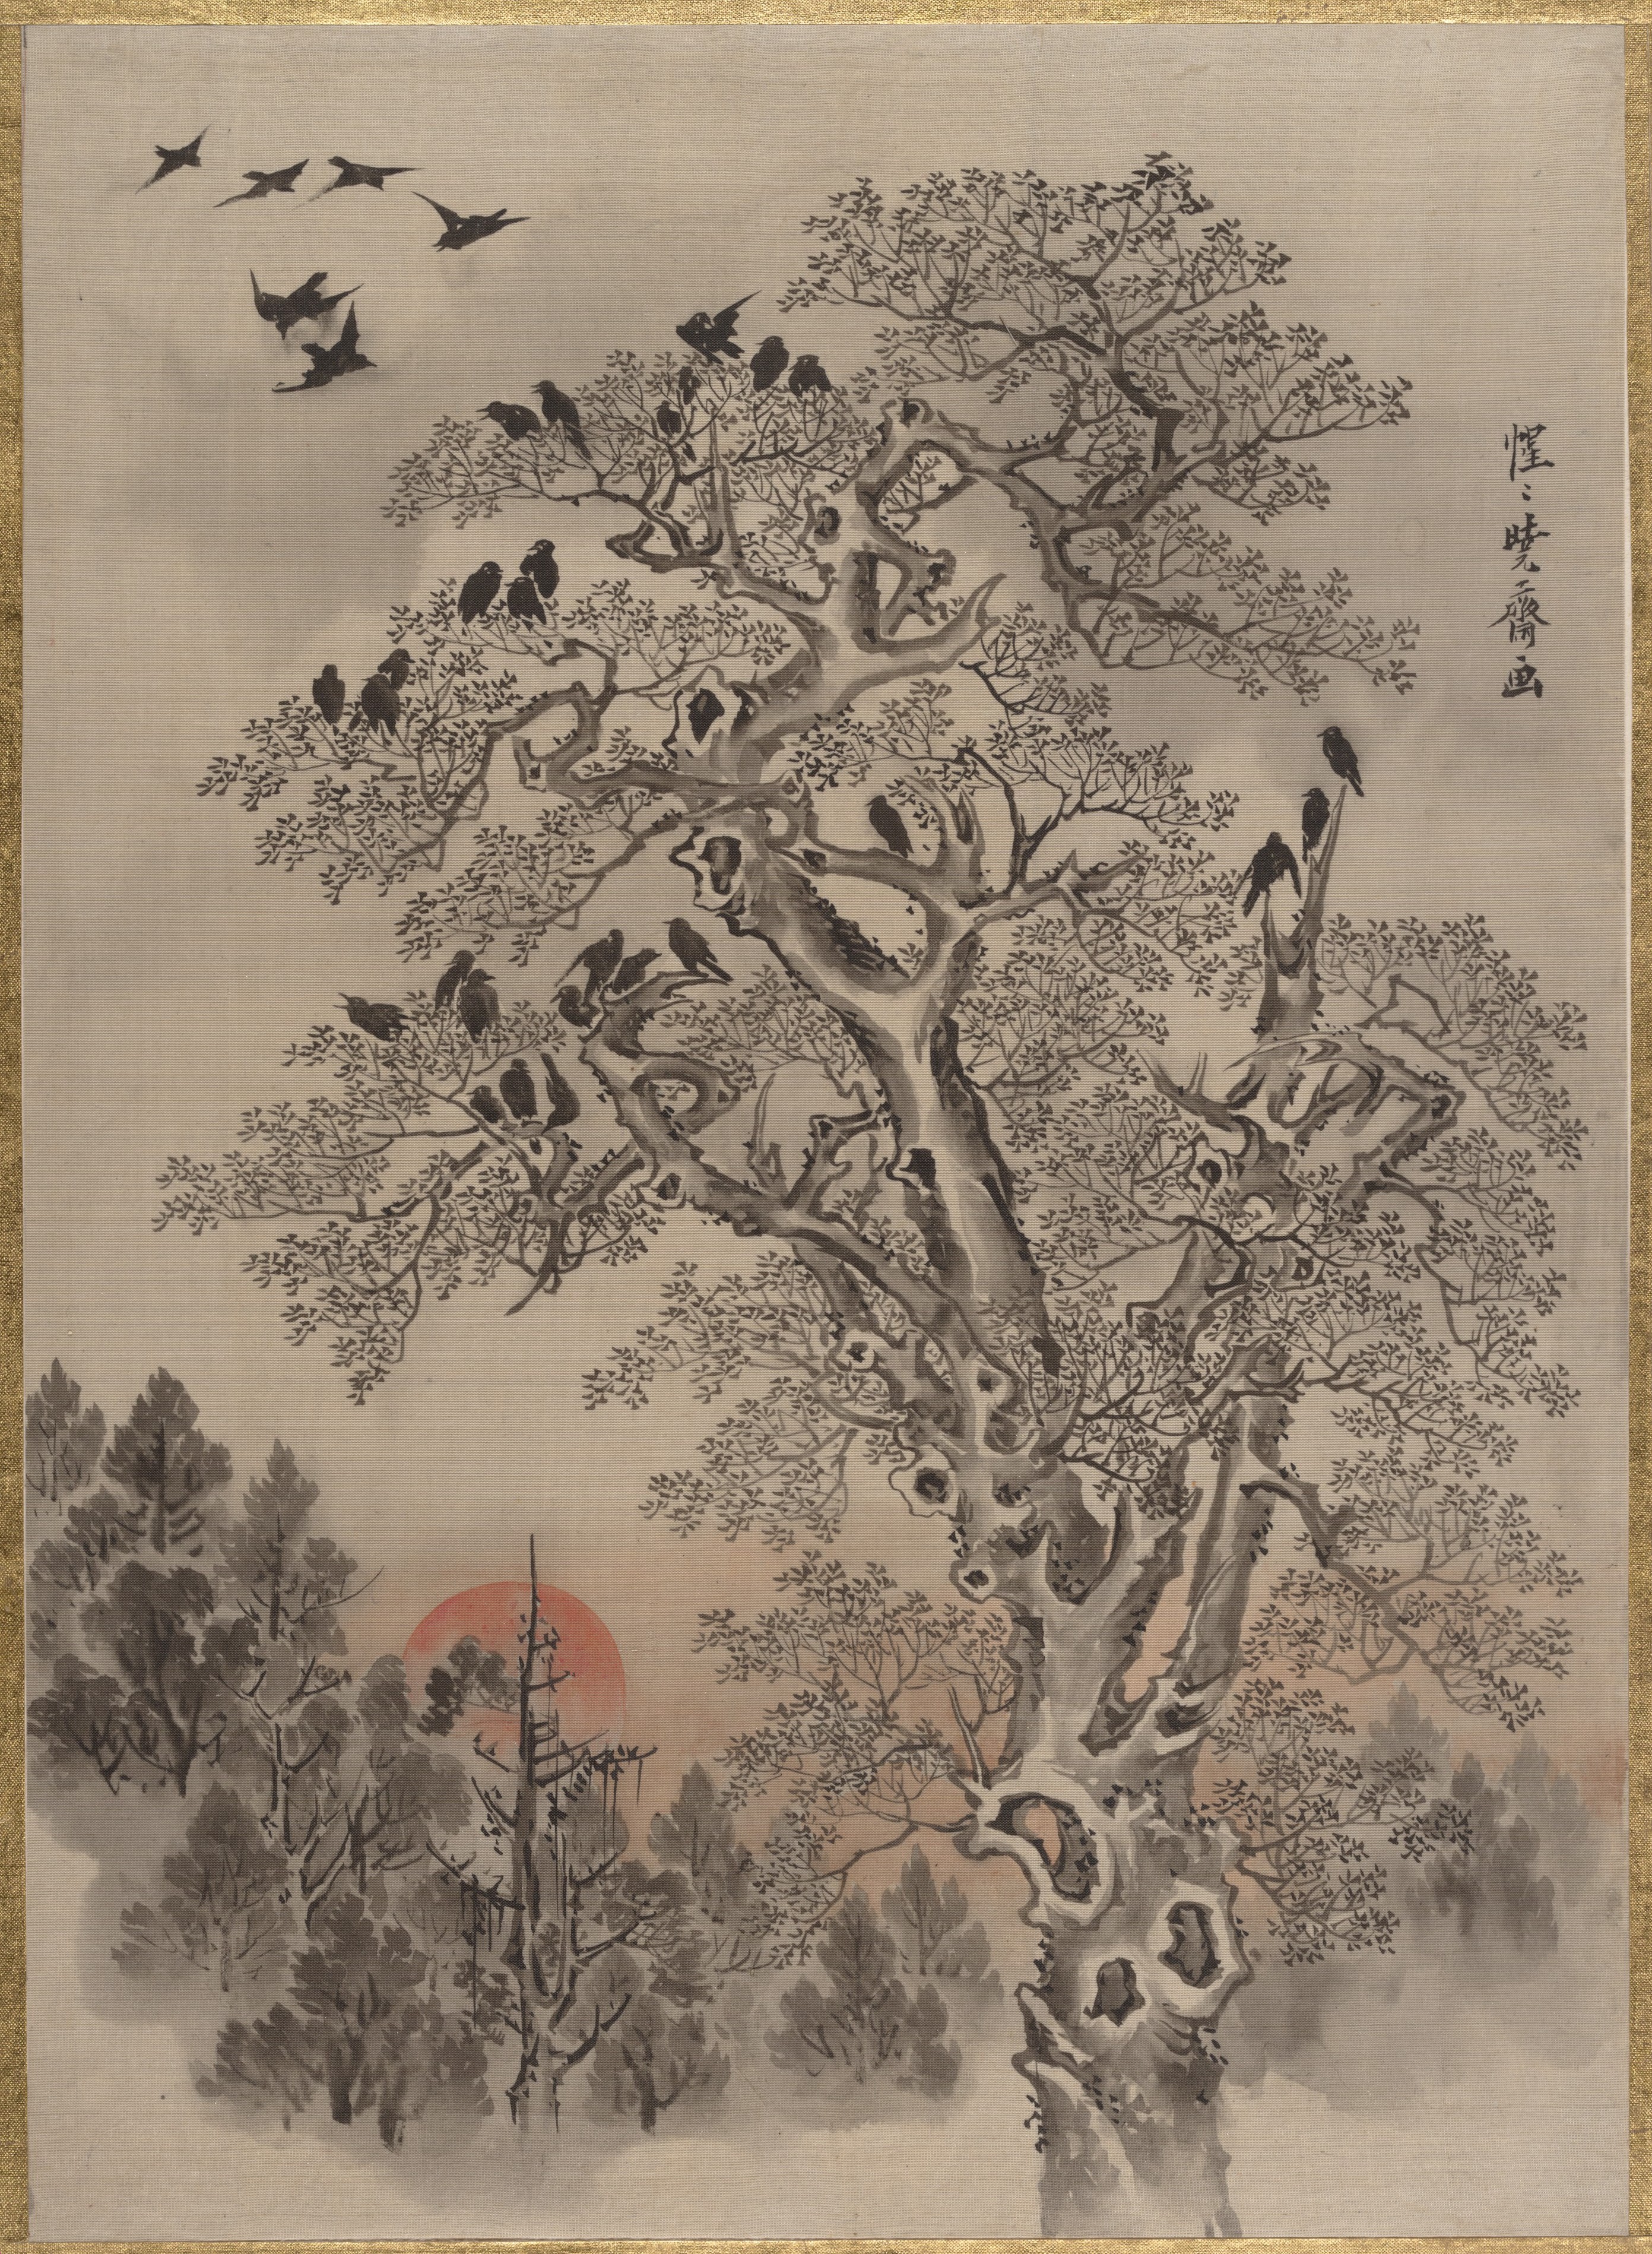 惺〻暁斎画